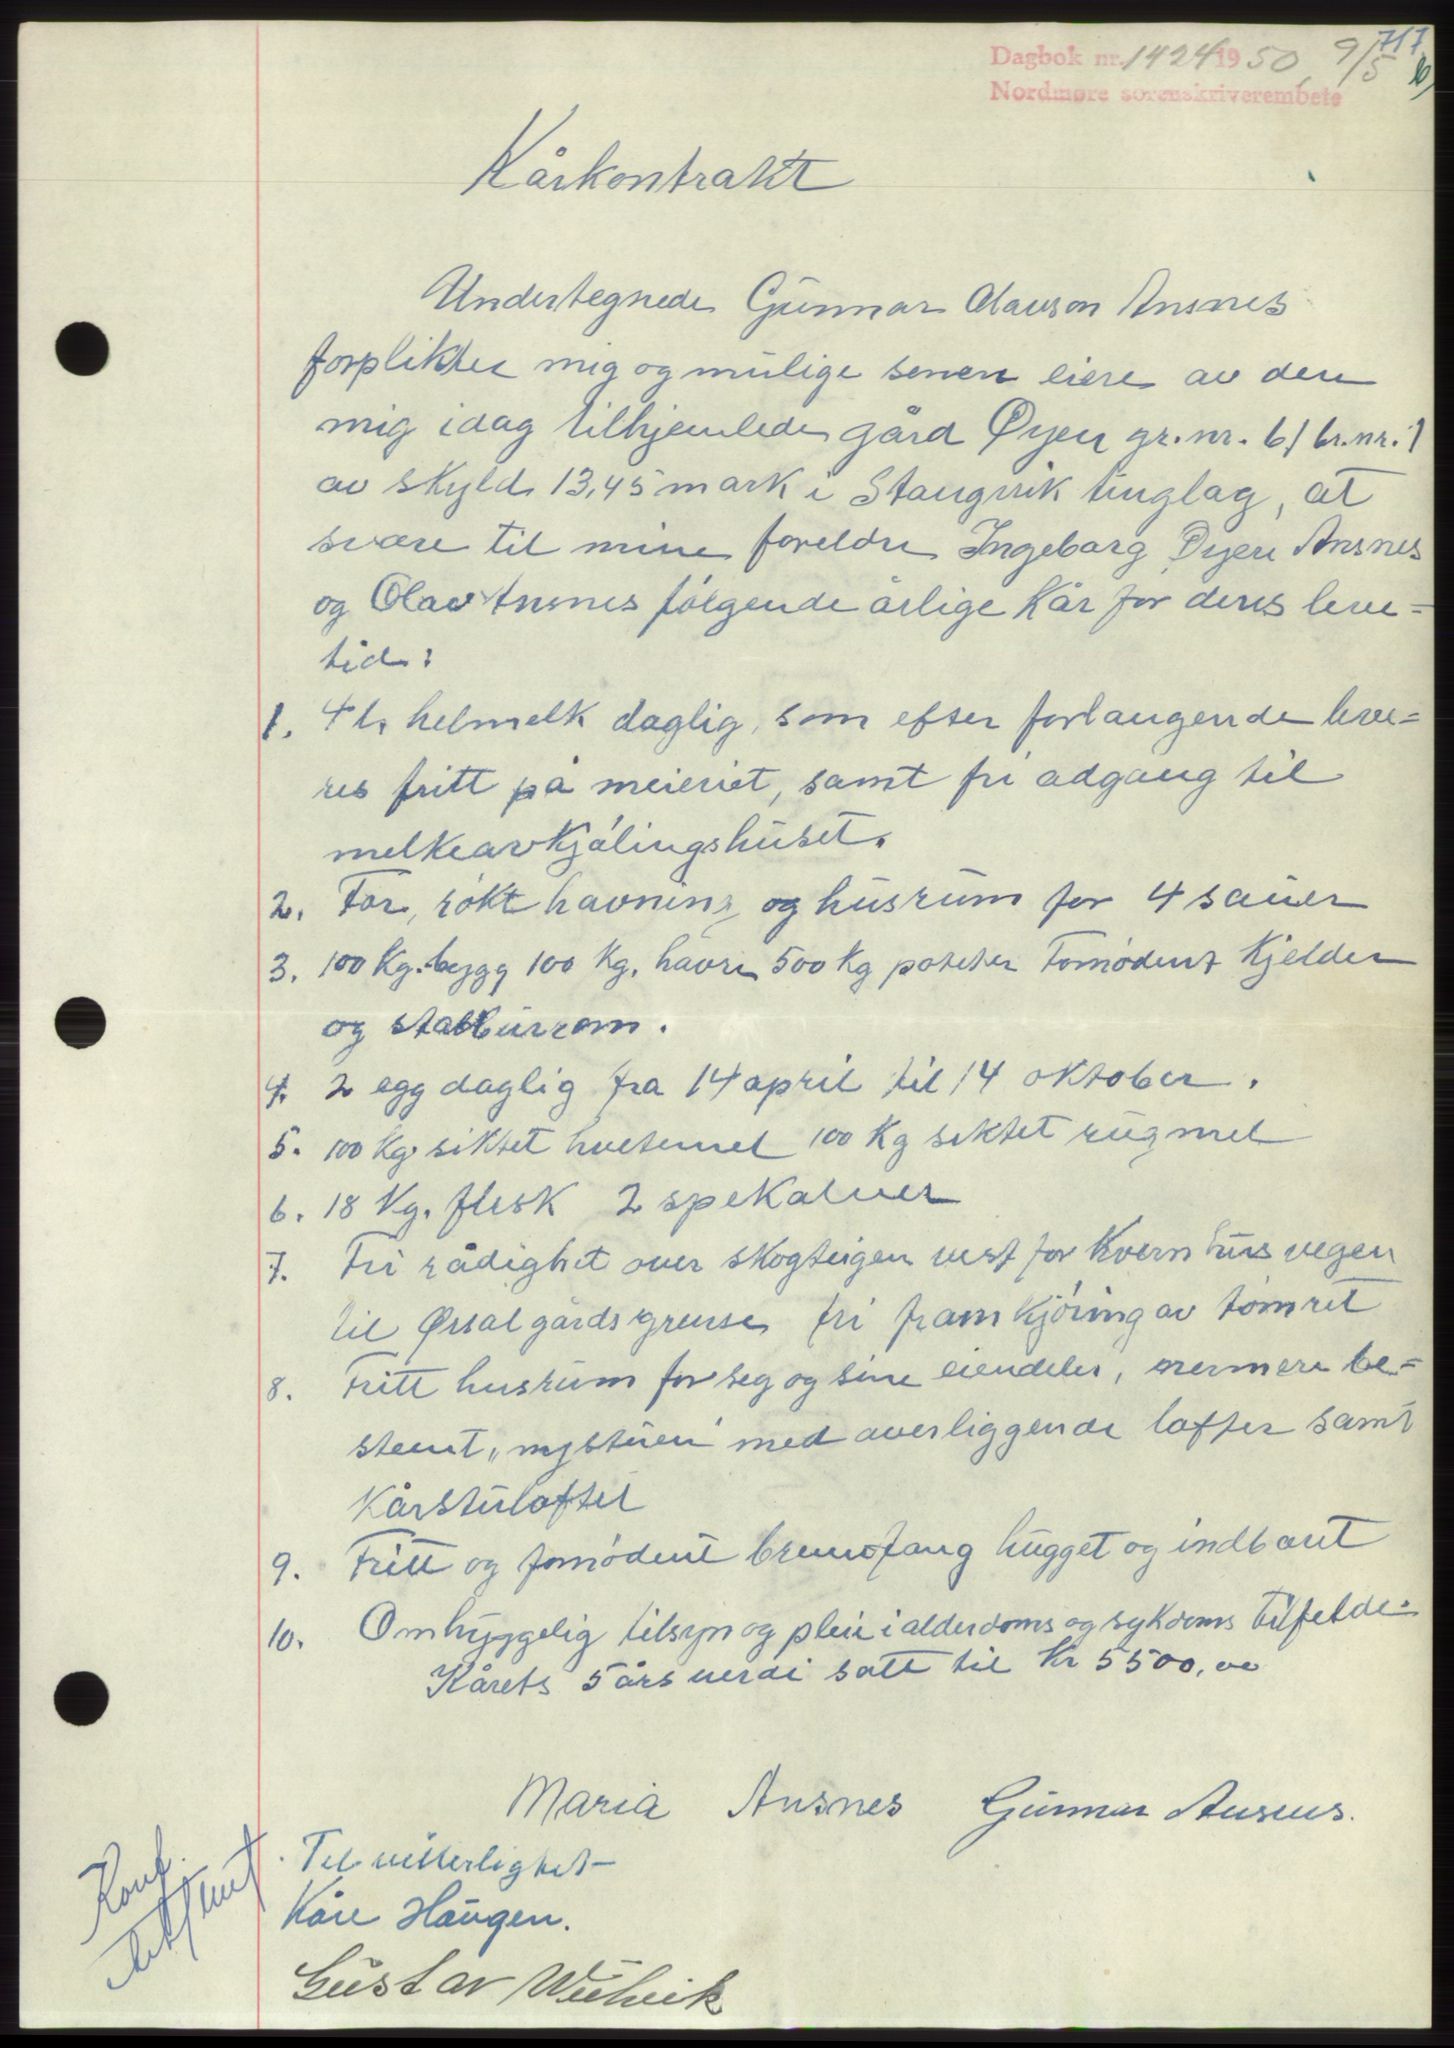 717
Dagbok nr. 1424 1950 9/5
Nordmøre sorenskriverembete
Kårkontrakt
Undertegnede Gunnar Olavson Ansnes
forplikter mig og mulige senere eiere av den
mig idag tilhjemlede gård Øyen gr.nr. 61 br.nr. 1
av skyld 13,45 mark i Stangvik tinglag, at
svare til mine foreldre Ingeborg Øyen Ansnes
og Olav Ansnes følgende årlige kår for deres leve=
tid:
1. 4 l. helmelk daglig, som efter forlangende leve=
res fritt på meieriet, samt fri adgang til
melkeavkjølingshuset.
2. For, røkt havning og husrum for 4 sauer
3. 100 Kg. bygg 100 Kg. havre 500 Kg poteter Fornødent Kjelder
og stabbursrom.
4. 2 egg daglig fra 14 april til 14 oktober.
5. 100 Kg siktet hvetemel 100 Kg siktet rugmel
6. 18 Kg. flesk 2 spekalver
7. Fri rådighet over skogteigen vest for Kvernhusvegen
til Ørsal gårds grense fri framkjøring av tømret
8. Fritt husrum for seg og sine eiendeler, nermere be=
stemt „nystuen" med overliggende lofter samt
Kårstuloftet
9. Fritt og fornødent brennefang hugget og indbaret
10. Omhyggelig tilsyn og pleie i alderdoms og sykdoms tilfelde.
Kårets 5 års verdi satt til Kr 5500,00
Maria Ansnes Gunnar Ansnes.
Til vitterlighet
Kåre Haugen.
Gustav
Konf.